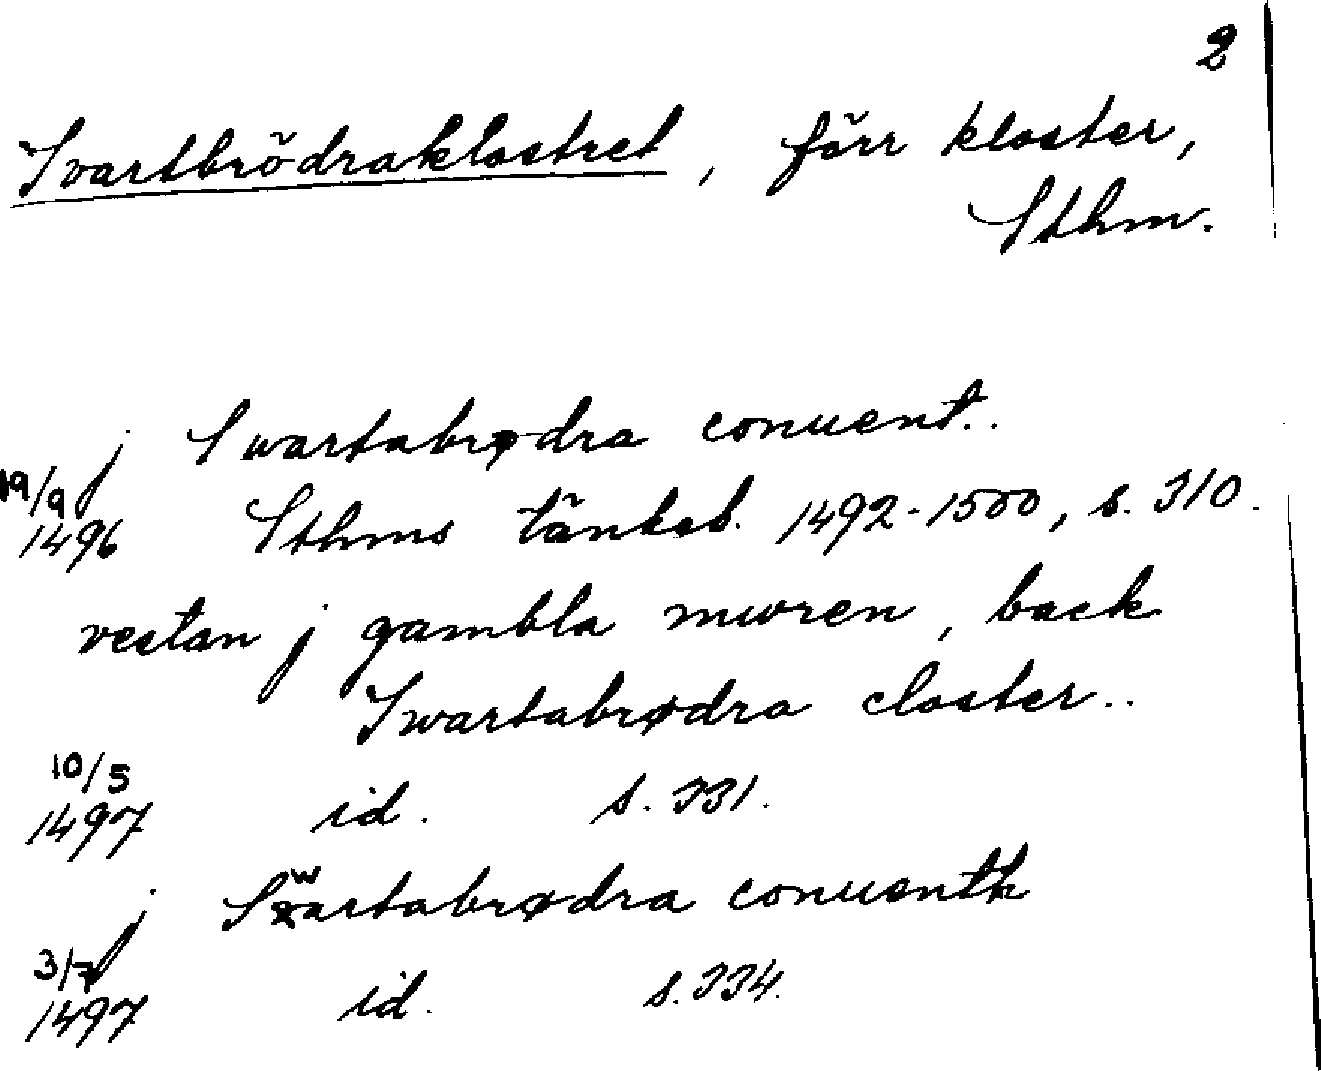 2
Svartbrödraklostret, förr kloster,
Sthm.
j Swartabrødra conuent..
19/9
1496 Sthms tänkeb. 1492-1500, s. 310.
vestan j gambla mwren, back
Swartabrødra closter..
10/5
1497 id. s. 331.
j Swartabrødra conuenth
3/7
1497 id. s. 334.